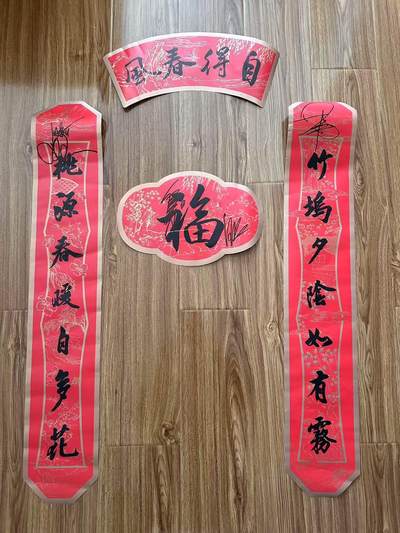 自得春風
竹塢夕陰如有霧
桃源春暖自多花
福